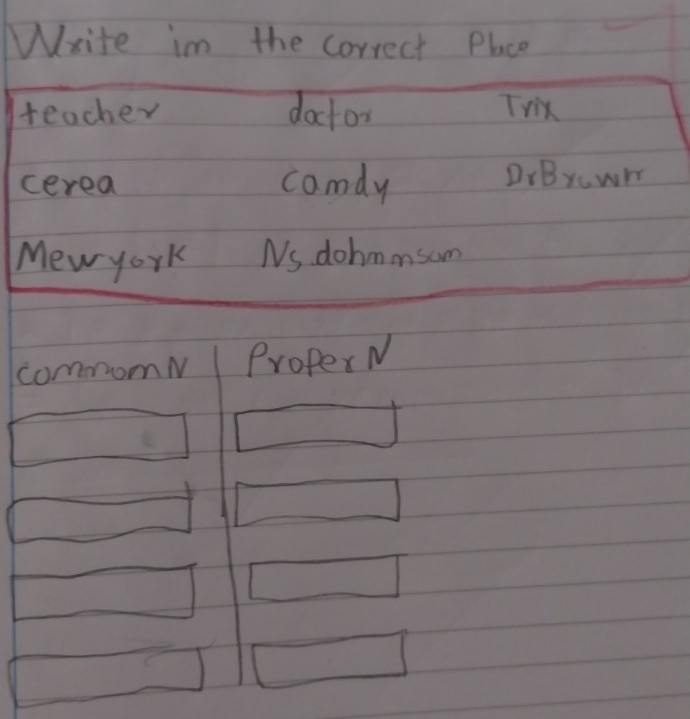 Write im the correct Place
teacher doctor Trix
cerea camdy DrBrown
Mewyork Ns.dohmmsom
commomN ProperN